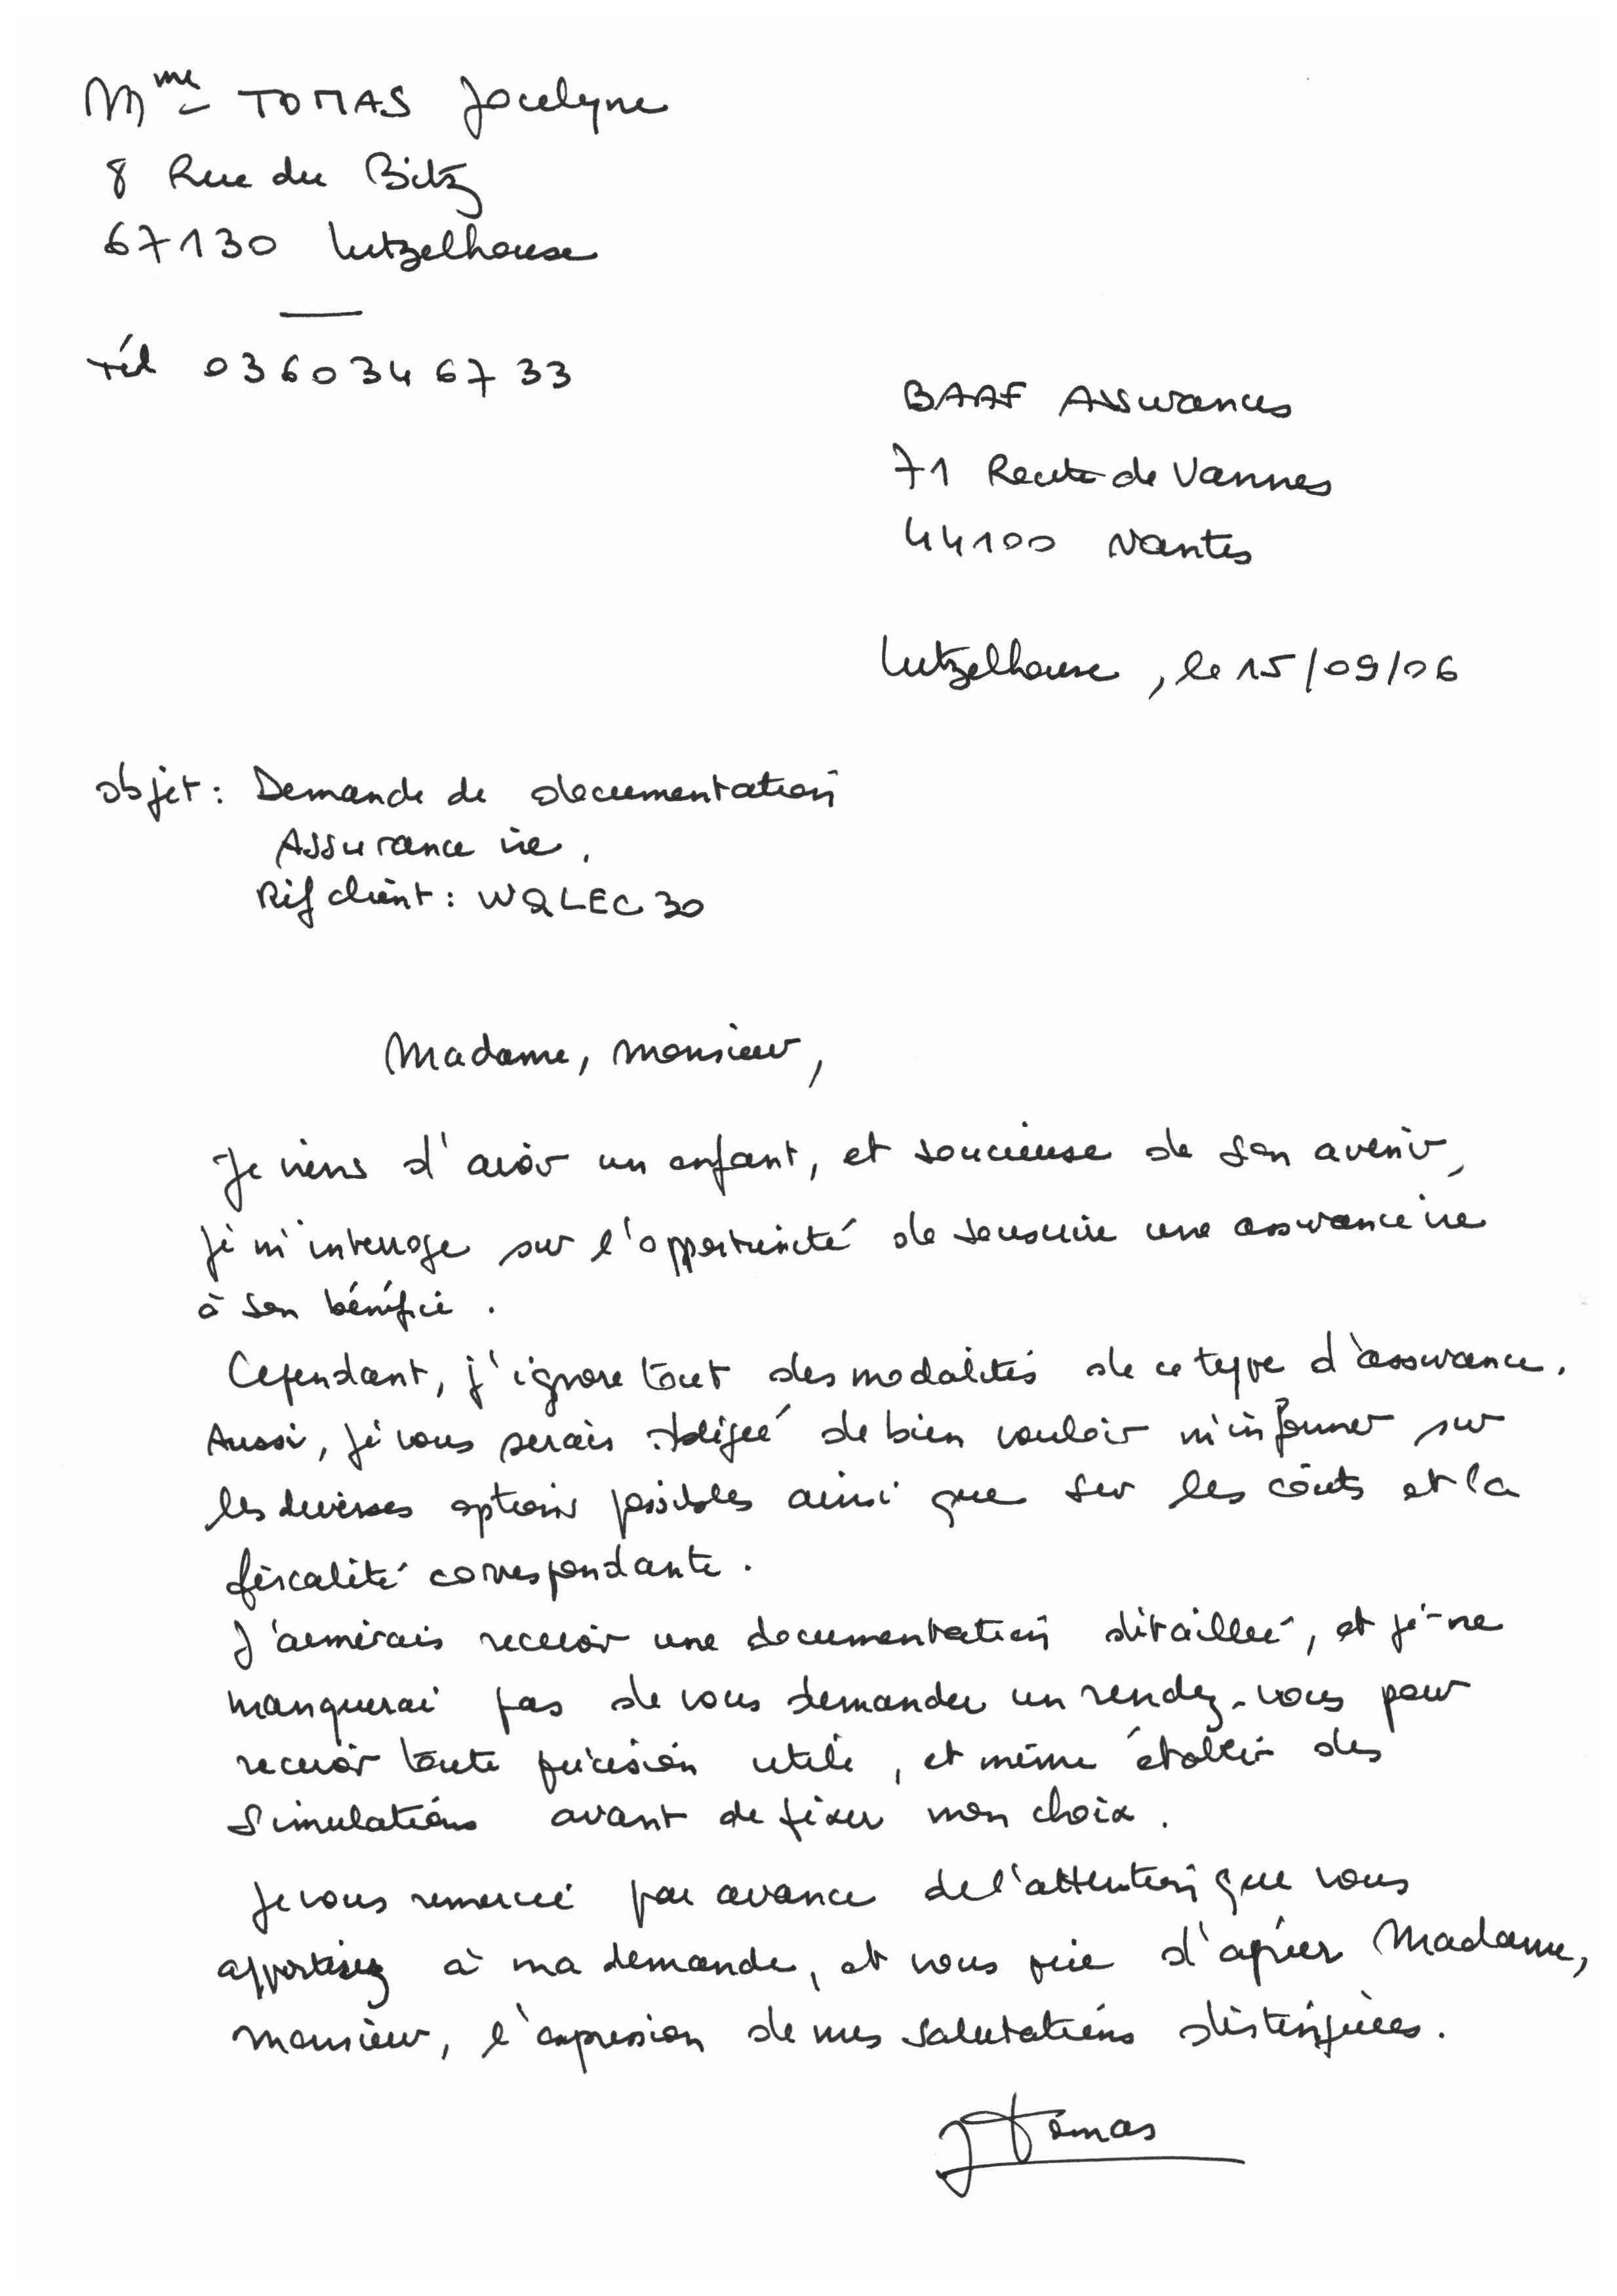 Mme TOMAS Jocelyne
8 Rue du Bitz
67130 Lutzelhouse
Tél 03 60 34 67 33
BAAF Assurances
71 Route de Vannes
44100 Nantes
Lutzelhouse, le 15/09/06
Objet : Demande de documentation
Assurance vie.
Réf client : WQLEC30
Madame, Monsieur,
Je viens d'avoir un enfant, et soucieuse de son avenir,
je m'interroge sur l'opportunité de souscrire une assurance vie
à son bénéfice.
Cependant, j'ignore tout des modalités de ce type d'assurance.
Aussi, je vous serais obligée de bien vouloir m'informer sur
les diverses options possibles ainsi que sur les coûts et la
fiscalité correspondante.
J'aimerais recevoir une documentation détaillée, et je ne
manquerai pas de vous demander un rendez-vous pour
recevoir toute précision utile, et même établir des
simulations avant de fixer mon choix.
Je vous remercie par avance de l'attention que vous
apporterez à ma demande, et vous prie d'agréer Madame,
Monsieur, l'expression de mes salutations distinguées.
J Tomas